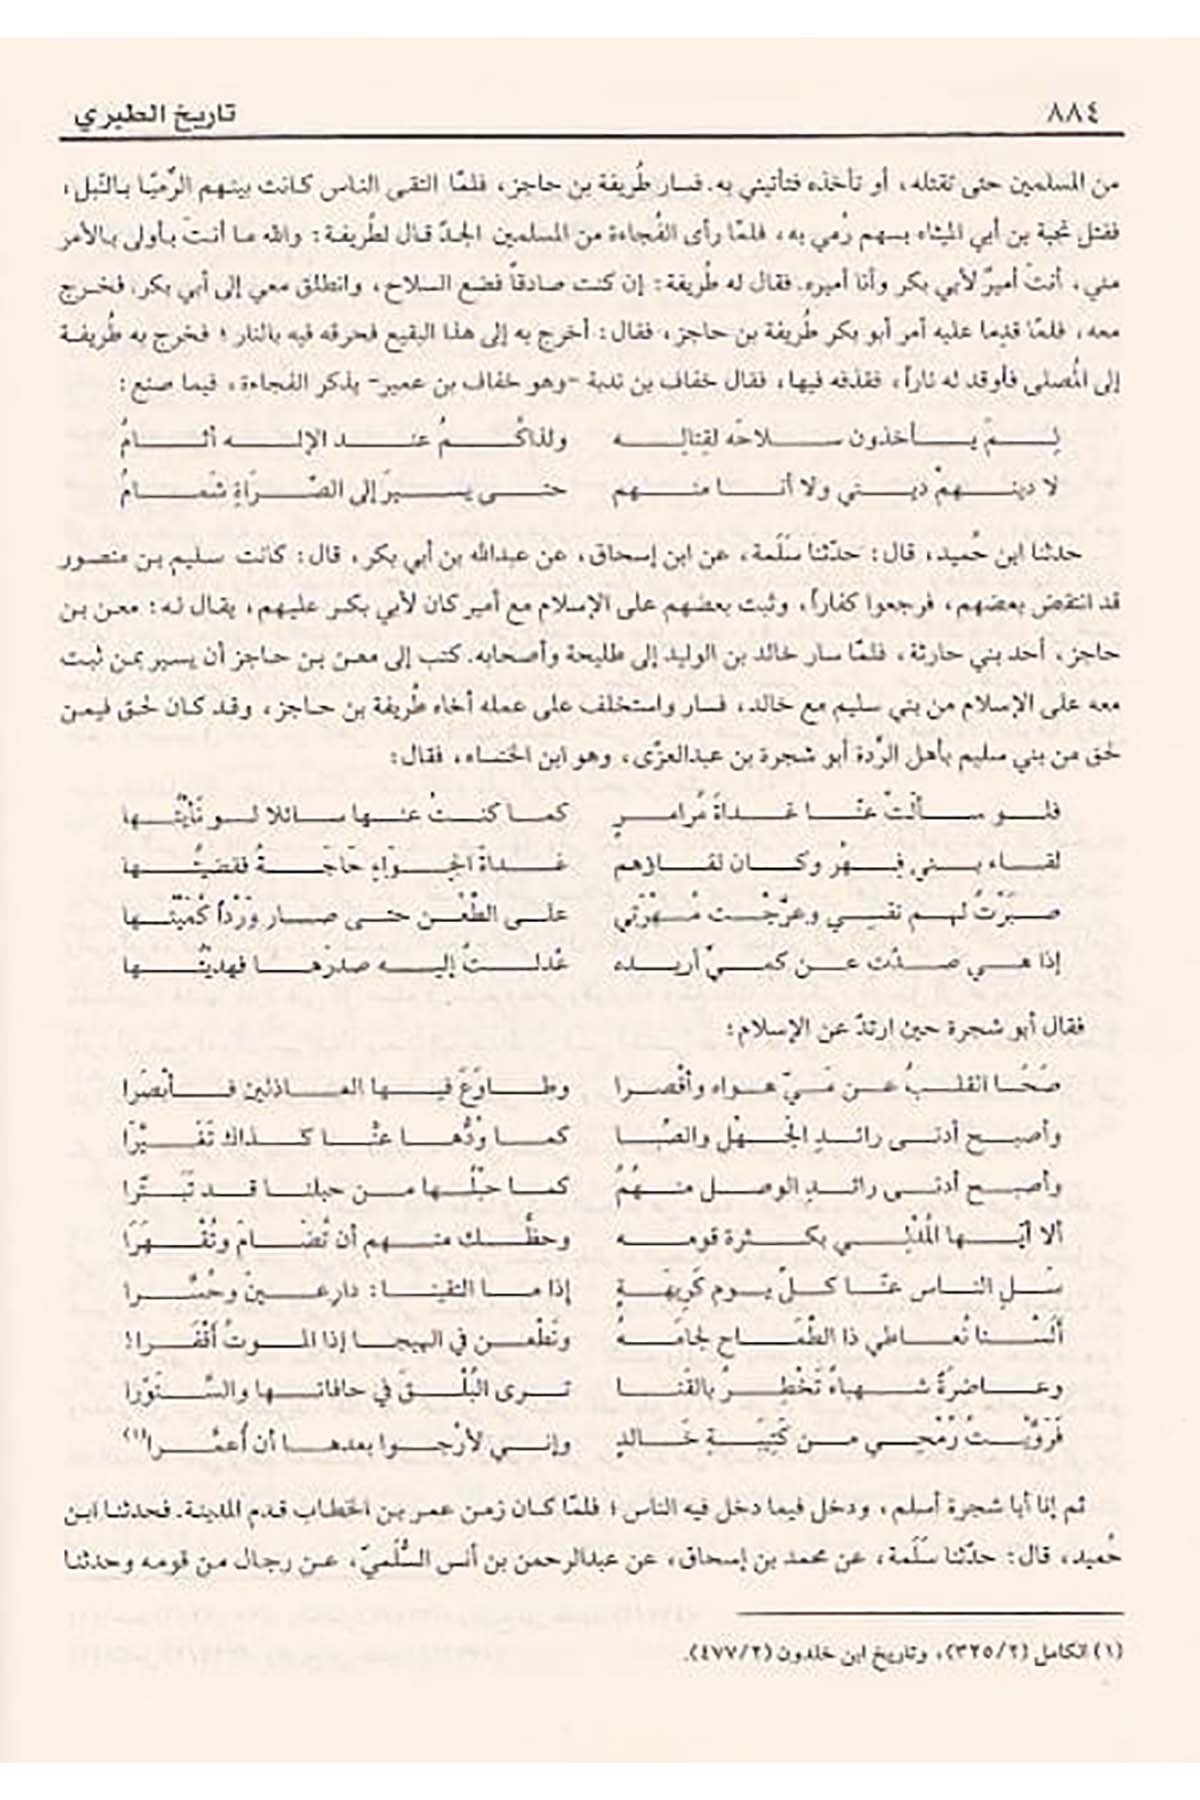 ٨٨٤ تاريخ الطبري
من المسلمين حتى تقتله، أو تأخذه فتأتيني به. فسار طُريفة بن حاجز، فلمّا التقى الناس كانت بينهم الرِّميّا بالنَّبل،
فقتل نجبة بن أبي الميثاء بسهم رُمي به، فلمّا رأى الفُجاءة من المسلمين الجدّ قال لطُريفة: والله ما أنتَ بأولى بالأمر
مني، أنتَ أميرٌ لأبي بكر وأنا أميره. فقال له طُريفة: إن كنت صادقاً فضع السلاح، وانطلق معي إلى أبي بكر. فخرج
معه، فلمّا قدِما عليه أمر أبو بكر طُريفة بن حاجز، فقال: أخرج به إلى هذا البقيع فحرقه فيه بالنار؛ فخرج به طُريفة
إلى المُصلى فأوقد له ناراً، فقذفه فيها، فقال خفاف بن ندبة -وهو خفاف بن عمير- يذكر الفجاءة، فيما صنع:
لِمَ يأخذون سلاحَه لقِتالِه ولذاكُمُ عند الإله أثامُ
لا دينهمْ ديني ولا أنا منهم حتى يسيرَ إلى الصَّراةِ شَمامُ
حدثنا ابن حُميد، قال: حدّثنا سَلَمة، عن ابن إسحاق، عن عبدالله بن أبي بكر، قال: كانت سليم بن منصور
قد انتقض بعضهم، فرجعوا كفاراً، وثبت بعضهم على الإسلام مع أمير كان لأبي بكر عليهم، يقال له: معن بن
حاجز، أحد بني حارثة، فلمّا سار خالد بن الوليد إلى طليحة وأصحابه. كتب إلى معن بن حاجز أن يسير بمن ثبت
معه على الإسلام من بني سليم مع خالد، فسار واستخلف على عمله أخاه طُريفة بن حاجز، وقد كان لحق فيمن
لحق من بني سليم بأهل الرِّدة أبو شجرة بن عبدالعزّى، وهو ابن الخنساء، فقال:
فلو سألَتْ عنّا غداةَ مُرامرٍ كما كنتُ عنها سائلا لو نَأَيْتُها
لقاء بني فِهْرٍ وكان لقاؤهم غداةَ الجِواءِ حَاجَةً فقضَيْتُها
صبَرْتُ لهم نفسي وعرَّجْت مُهْرَتي على الطَّعْن حتى صار وَرْداً كُمَيْتُها
إذا هي صَدَّت عن كمِيٍّ أريده عَدلتُ إليه صدرَها فهديْتُها
فقال أبو شجرة حين ارتدّ عن الإسلام:
صَحَا القلبُ عن مَيّ هواه وأقْصرا وطاوَعَ فيها العاذلين فأبْصَرا
وأصبح أدنى رائدِ الجَهْل والصِّبا كما وُدُّها عنّا كذاك تَغَيَّرَا
وأصبح أدنى رائدِ الوصل منهُمُ كما حبْلُها من حبلنا قد تبَتَّرا
ألا أيّها المُدْلِي بكثرة قومه وحظُّك منهم أن تُضَامَ وتُقْهَرَا
سَلِ الناس عنّا كلَّ يوم كَريهَةٍ إذا ما التقينا: دارعينَ وحُسَّرا
ألَسْنا نُعاطي ذا الطِّمَاح لجَامَهُ ونَطْعن في الهيجا إذا الموتُ أقْفَرا!
وعاضرةٌ شهباءُ تَخْطِرُ بالقَنا ترى البُلْقَ في حافاتها والسَّنَوَّرا
فَروَّيْتُ رُمْحِي من كَتِيبَةِ خَالدٍ وإني لأرْجوا بعدها أن أُعمَّرا(١)
ثم إنا أبا شجرة أسلم، ودخل فيما دخل فيه الناس؛ فلمّا كان زمن عمر بن الخطاب قدم المدينة. فحدثنا ابن
حُميد، قال: حدّثنا سَلَمة، عن محمد بن إسحاق، عن عبدالرحمن بن أنس السُّلَميّ، عن رجال من قومه وحدثنا
(١) الكامل (٣٢٥/٢)، وتاريخ ابن خلدون (٤٧٧/٢).